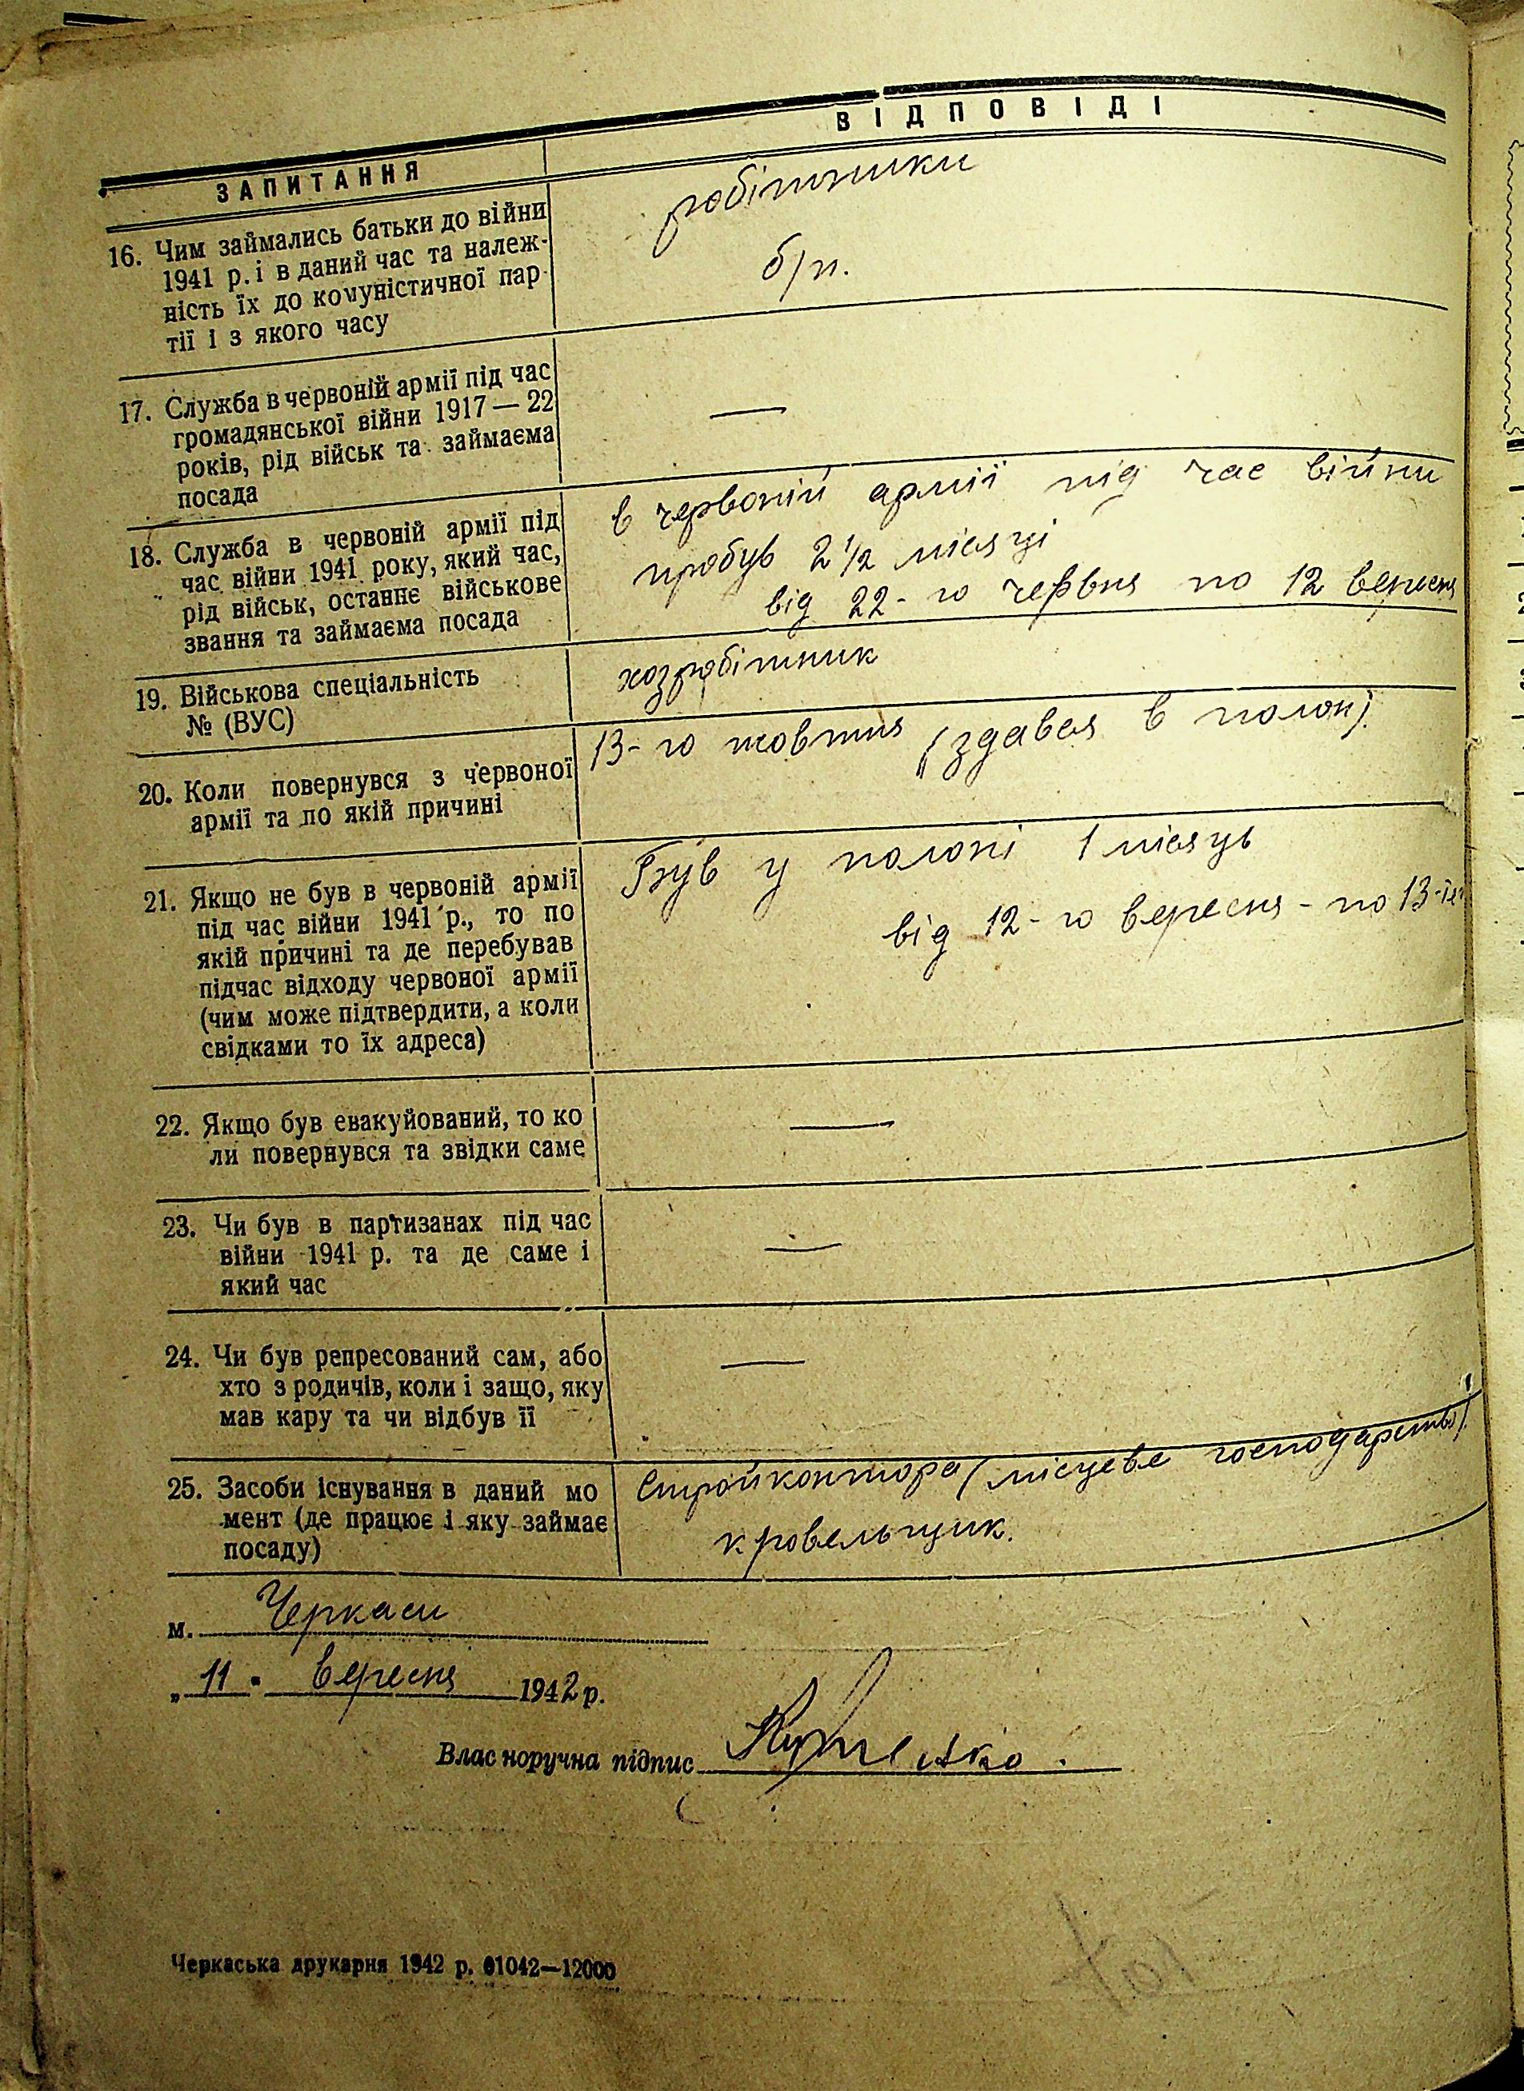 ЗАПИТАННЯ
ВІДПОВІДІ
16. Чим займались батьки до війни
1941 р. і в даний час та належ-
ність їх до комуністичної пар-
тії і з якого часу
робітники
б/п.
17. Служба в червоній армії під час
громадянської війни 1917 — 22
років, рід військ та займаєма
посада
—
18. Служба в червоній армії під
час війни 1941 року, який час,
рід військ, останнє військове
звання та займаєма посада
в червоній армії під час війни
пробув 2 1/2 місяці
від 22-го червня по 12 вересня
19. Військова спеціальність
№ (ВУС)
хозробітник
20. Коли повернувся з червоної
армії та по якій причині
13-го жовтня (здався в полон).
21. Якщо не був в червоній армії
під час війни 1941 р., то по
якій причині та де перебував
підчас відходу червоної армії
(чим може підтвердити, а коли
свідками то їх адреса)
Був у полоні 1 місяць
від 12-го вересня - по 13-
22. Якщо був евакуйований, то ко
ли повернувся та звідки саме
—
23. Чи був в партизанах під час
війни 1941 р. та де саме і
який час
—
24. Чи був репресований сам, або
хто з родичів, коли і защо, яку
мав кару та чи відбув її
—
25. Засоби існування в даний мо
мент (де працює і яку займає
посаду)
Стройконтора (місцеве господарство)
кровельщик.
м. Черкаси
„11" вересня 1942 р.
Власноручна підпис
Черкаська друкарня 1942 р. 01042—12000